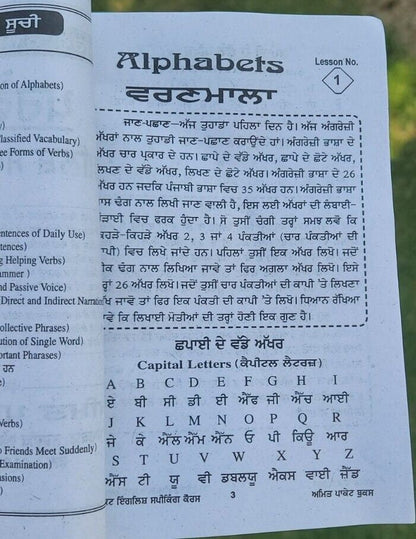 ਸੂਚੀ
on of Alphabets)
y)
lassified Vocabulary)
ee Forms of Verbs)
)
entences of Daily Use)
tences)
g Helping Verbs)
ammer )
nd Passive Voice)
Direct and Indirect Narration
ollective Phrases)
ution of Single Word)
ortant Pharases)
ਹਨ
e)
Verbs)
o Friends Meet Suddenly)
Examination)
sions)
)
Alphabets
Lesson No.
1
ਵਰਣਮਾਲਾ
ਜਾਣ-ਪਛਾਣ—ਅੱਜ ਤੁਹਾਡਾ ਪਹਿਲਾ ਦਿਨ ਹੈ। ਅੱਜ ਅੰਗਰੇਜ਼ੀ
ਅੱਖਰਾਂ ਨਾਲ ਤੁਹਾਡੀ ਜਾਣ-ਪਛਾਣ ਕਰਾਉਂਦੇ ਹਾਂ। ਅੰਗਰੇਜ਼ੀ ਭਾਸ਼ਾ ਦੇ
ਅੱਖਰ ਚਾਰ ਪ੍ਰਕਾਰ ਦੇ ਹਨ। ਛਾਪੇ ਦੇ ਵੱਡੇ ਅੱਖਰ, ਛਾਪੇ ਦੇ ਛੋਟੇ ਅੱਖਰ,
ਲਿਖਣ ਦੇ ਵੱਡੇ ਅੱਖਰ, ਲਿਖਣ ਦੇ ਛੋਟੇ ਅੱਖਰ। ਅੰਗਰੇਜ਼ੀ ਭਾਸ਼ਾ ਦੇ 26
ਅੱਖਰ ਹਨ ਜਦਕਿ ਪੰਜਾਬੀ ਭਾਸ਼ਾ ਵਿਚ 35 ਅੱਖਰ ਹਨ। ਅੰਗਰੇਜ਼ੀ ਭਾਸ਼ਾ
ਸ ਢੰਗ ਨਾਲ ਲਿਖੀ ਜਾਣ ਵਾਲੀ ਹੈ, ਇਸ ਲਈ ਅੱਖਰਾਂ ਦੀ ਲੰਬਾਈ-
ੜਾਈ ਵਿਚ ਫਰਕ ਹੁੰਦਾ ਹੈ। ਸੋ ਤੁਸੀਂ ਚੰਗੀ ਤਰ੍ਹਾਂ ਸਮਝ ਲਵੋ ਕਿ
ਕਿਹੜੇ-ਕਿਹੜੇ ਅੱਖਰ 2, 3 ਜਾਂ 4 ਪੰਕਤੀਆਂ (ਚਾਰ ਪੰਕਤੀਆਂ ਦੀ
ਕਾਪੀ) ਵਿਚ ਲਿਖੇ ਜਾਂਦੇ ਹਨ। ਪਹਿਲਾਂ ਤੁਸੀਂ ਇਕ ਅੱਖਰ ਲਿਖੋ। ਜਦੋਂ
ਠੀਕ ਢੰਗ ਨਾਲ ਲਿਖਿਆ ਜਾਵੇ ਤਾਂ ਫਿਰ ਅਗਲਾ ਅੱਖਰ ਲਿਖੋ। ਇਸੇ
ਤਰ੍ਹਾਂ 26 ਅੱਖਰ ਲਿਖੋ। ਜਦੋਂ ਤੁਸੀਂ ਚਾਰ ਪੰਕਤੀਆਂ ਦੀ ਕਾਪੀ 'ਤੇ ਲਿਖਣਾ
ਸਿੱਖ ਜਾਵੋ ਤਾਂ ਫਿਰ ਇਕ ਪੰਕਤੀ ਦੀ ਕਾਪੀ 'ਤੇ ਲਿਖੋ। ਧਿਆਨ ਰੱਖਿਆ
ਜਾਵੇ ਕਿ ਲਿਖਾਈ ਮੋਤੀਆਂ ਦੀ ਤਰ੍ਹਾਂ ਹੋਣੀ ਇਕ ਗੁਣ ਹੈ।
ਛਪਾਈ ਦੇ ਵੱਡੇ ਅੱਖਰ
Capital Letters (ਕੈਪੀਟਲ ਲੈਟਰਜ਼)
A B C D E F G H I
ਏ ਬੀ ਸੀ ਡੀ ਈ ਐੱਫ ਜੀ ਐੱਚ ਆਈ
J K L M N O P Q R
ਜੇ ਕੇ ਐੱਲ ਐੱਮ ਐੱਨ ਓ ਪੀ ਕਿਊ ਆਰ
S T U V W X Y Z
ਐੱਸ ਟੀ ਯੂ ਵੀ ਡਬਲਯੂ ਐਕਸ ਵਾਈ ਜ਼ੈੱਡ
ਟ ਇੰਗਲਿਸ਼ ਸਪੀਕਿੰਗ ਕੋਰਸ 3 ਅਮਿਤ ਪਾਕੇਟ ਬੁਕਸ